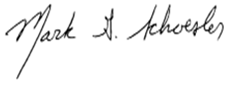 Mark G. Schoesler